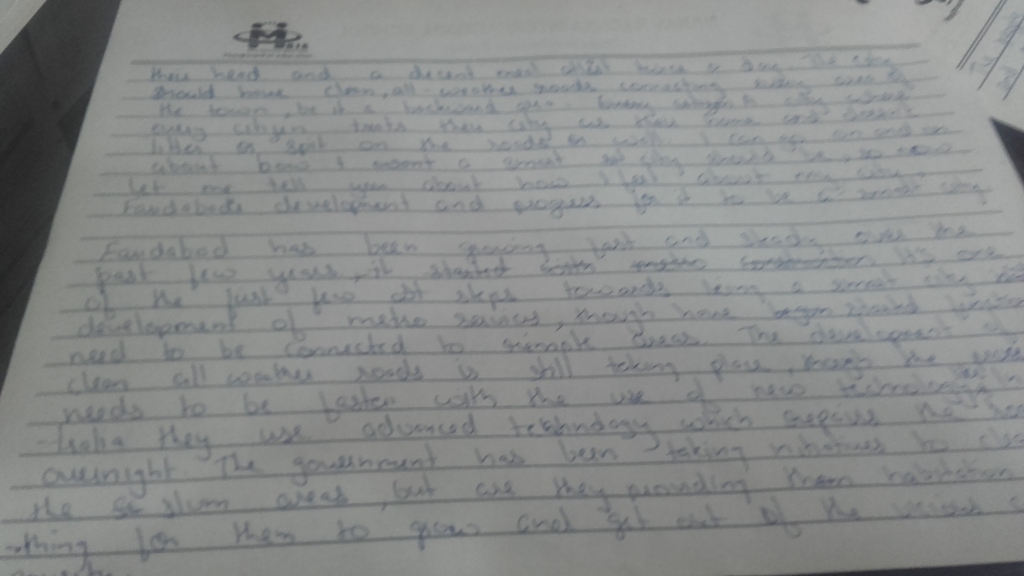 their head and a decent meal atleast twice a day. The city
should have clean, all weather roads connecting every area of
the town, be it a backward area. every citizen & city where
every citizen treats their city as their home and doesn't
litter or spit on the roads or wall. I can go on and on
about how I want a smart city should be, so now
let me tell you about how I feel about my city,
Faridabad's development and progress for it to be a smart city
Faridabad has been growing fast and steady over the
past few years, it started with metro construction It's one
of the first few steps towards being a smart city
development of metro services, though have began started function
need to be connected to remote areas. The development of
clean all weather roads is still taking place, though the
needs to be faster with the use of new technology. In
they use advanced technology which repairs the
overnight. The government has been taking initiatives to
the slum areas, but are they providing them habitation
-thing for them to grow and get out of the vicious